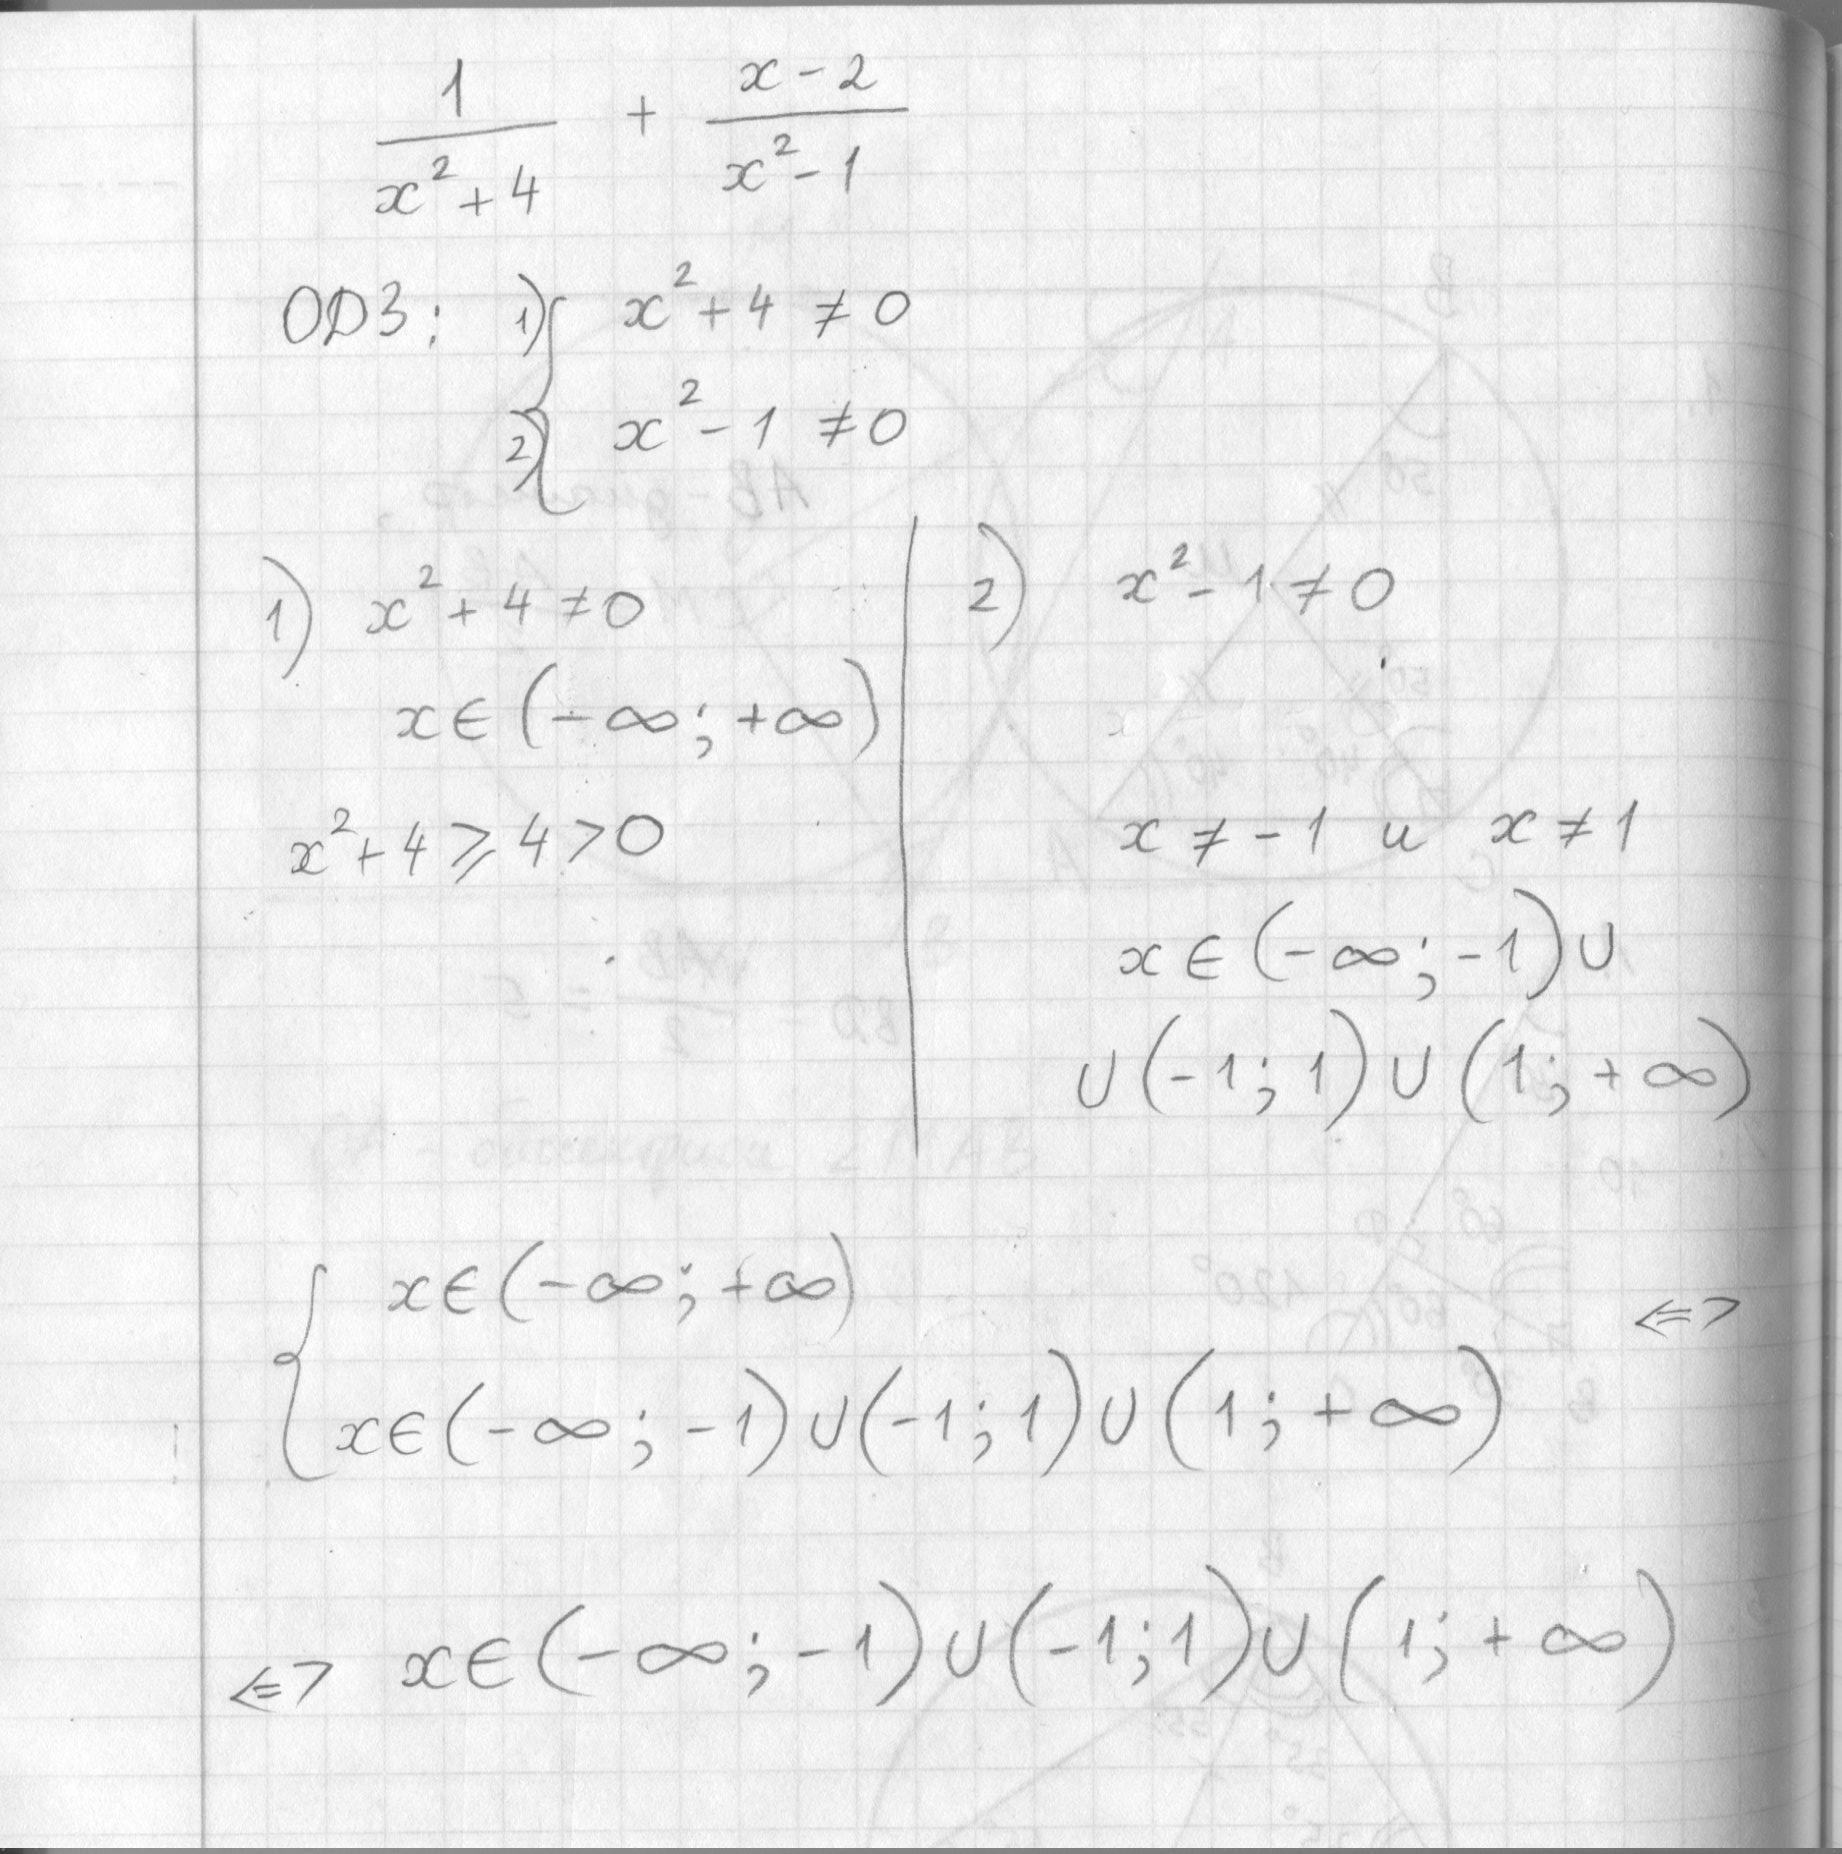 1/(x² + 4) + (x - 2)/(x² - 1)
ОДЗ: 1) { x² + 4 ≠ 0
2) { x² - 1 ≠ 0
1) x² + 4 ≠ 0
x ∈ (-∞; +∞)
x² + 4 ⩾ 4 > 0
2) x² - 1 ≠ 0
x ≠ -1 и x ≠ 1
x ∈ (-∞; -1) ∪
∪ (-1; 1) ∪ (1; +∞)
{ x ∈ (-∞; +∞)
x ∈ (-∞; -1) ∪ (-1; 1) ∪ (1; +∞) <=>
<=> x ∈ (-∞; -1) ∪ (-1; 1) ∪ (1; +∞)